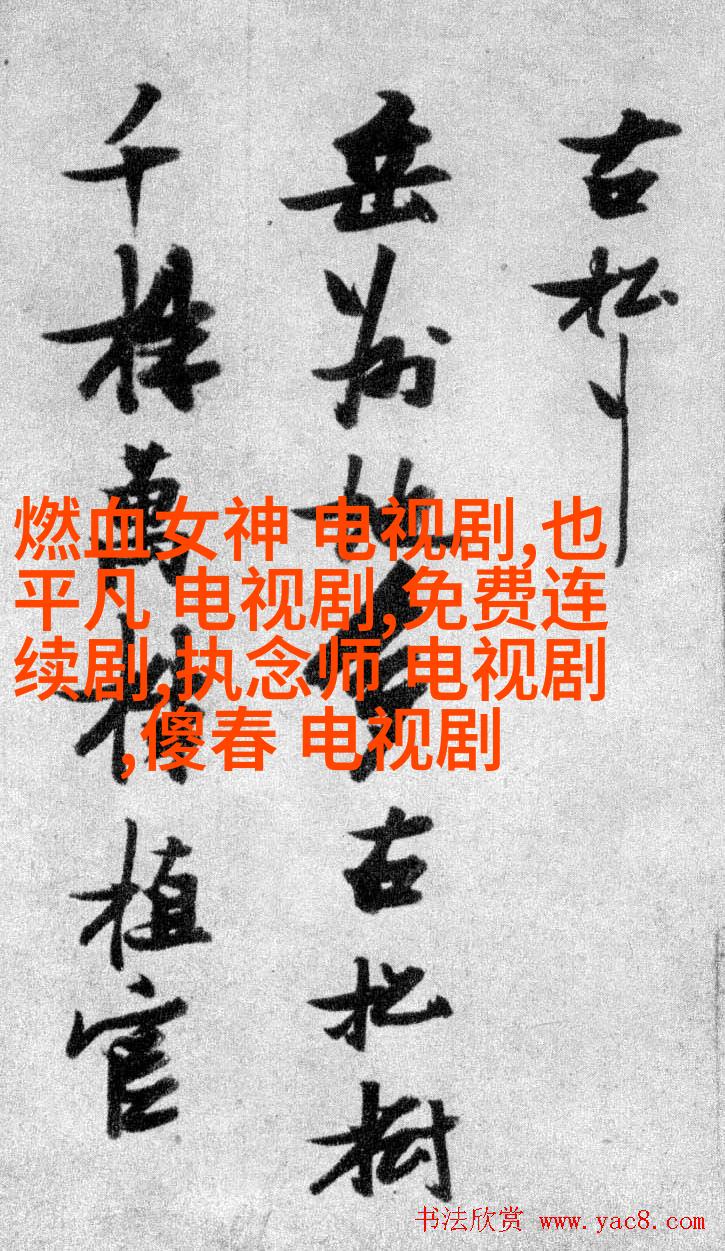 古松行
岳州古松樹
千株萬植官
燃血女神 电视剧,也
平凡 电视剧,免费连
续剧,执念师 电视剧
,傻春 电视剧
书法欣赏 www.yac8.com